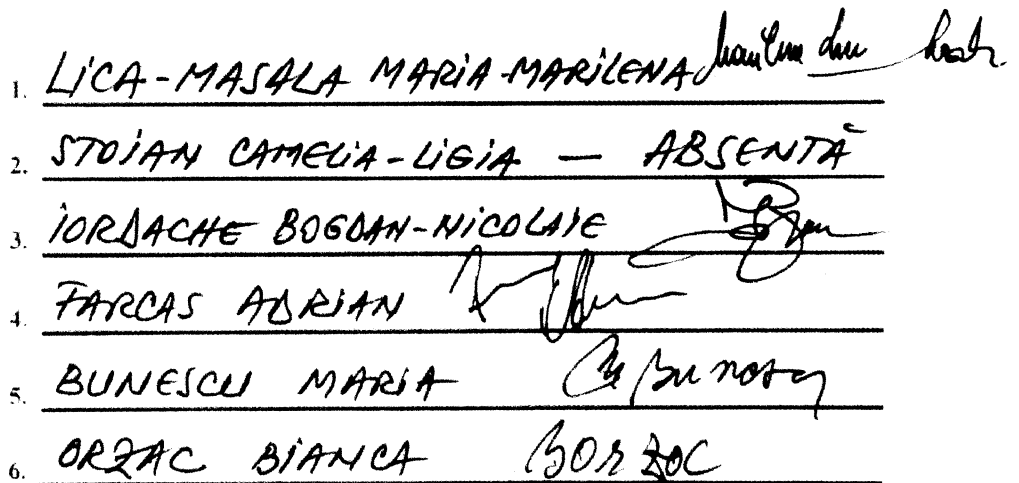 1. LICA-MASALA MARIA-MARILENA
2. STOIAN CAMELIA-LIGIA — ABSENTĂ
3. IORDACHE BOGDAN-NICOLAIE
4. FARCAS ADRIAN
5. BUNESCU MARIA
6. ORZAC BIANCA